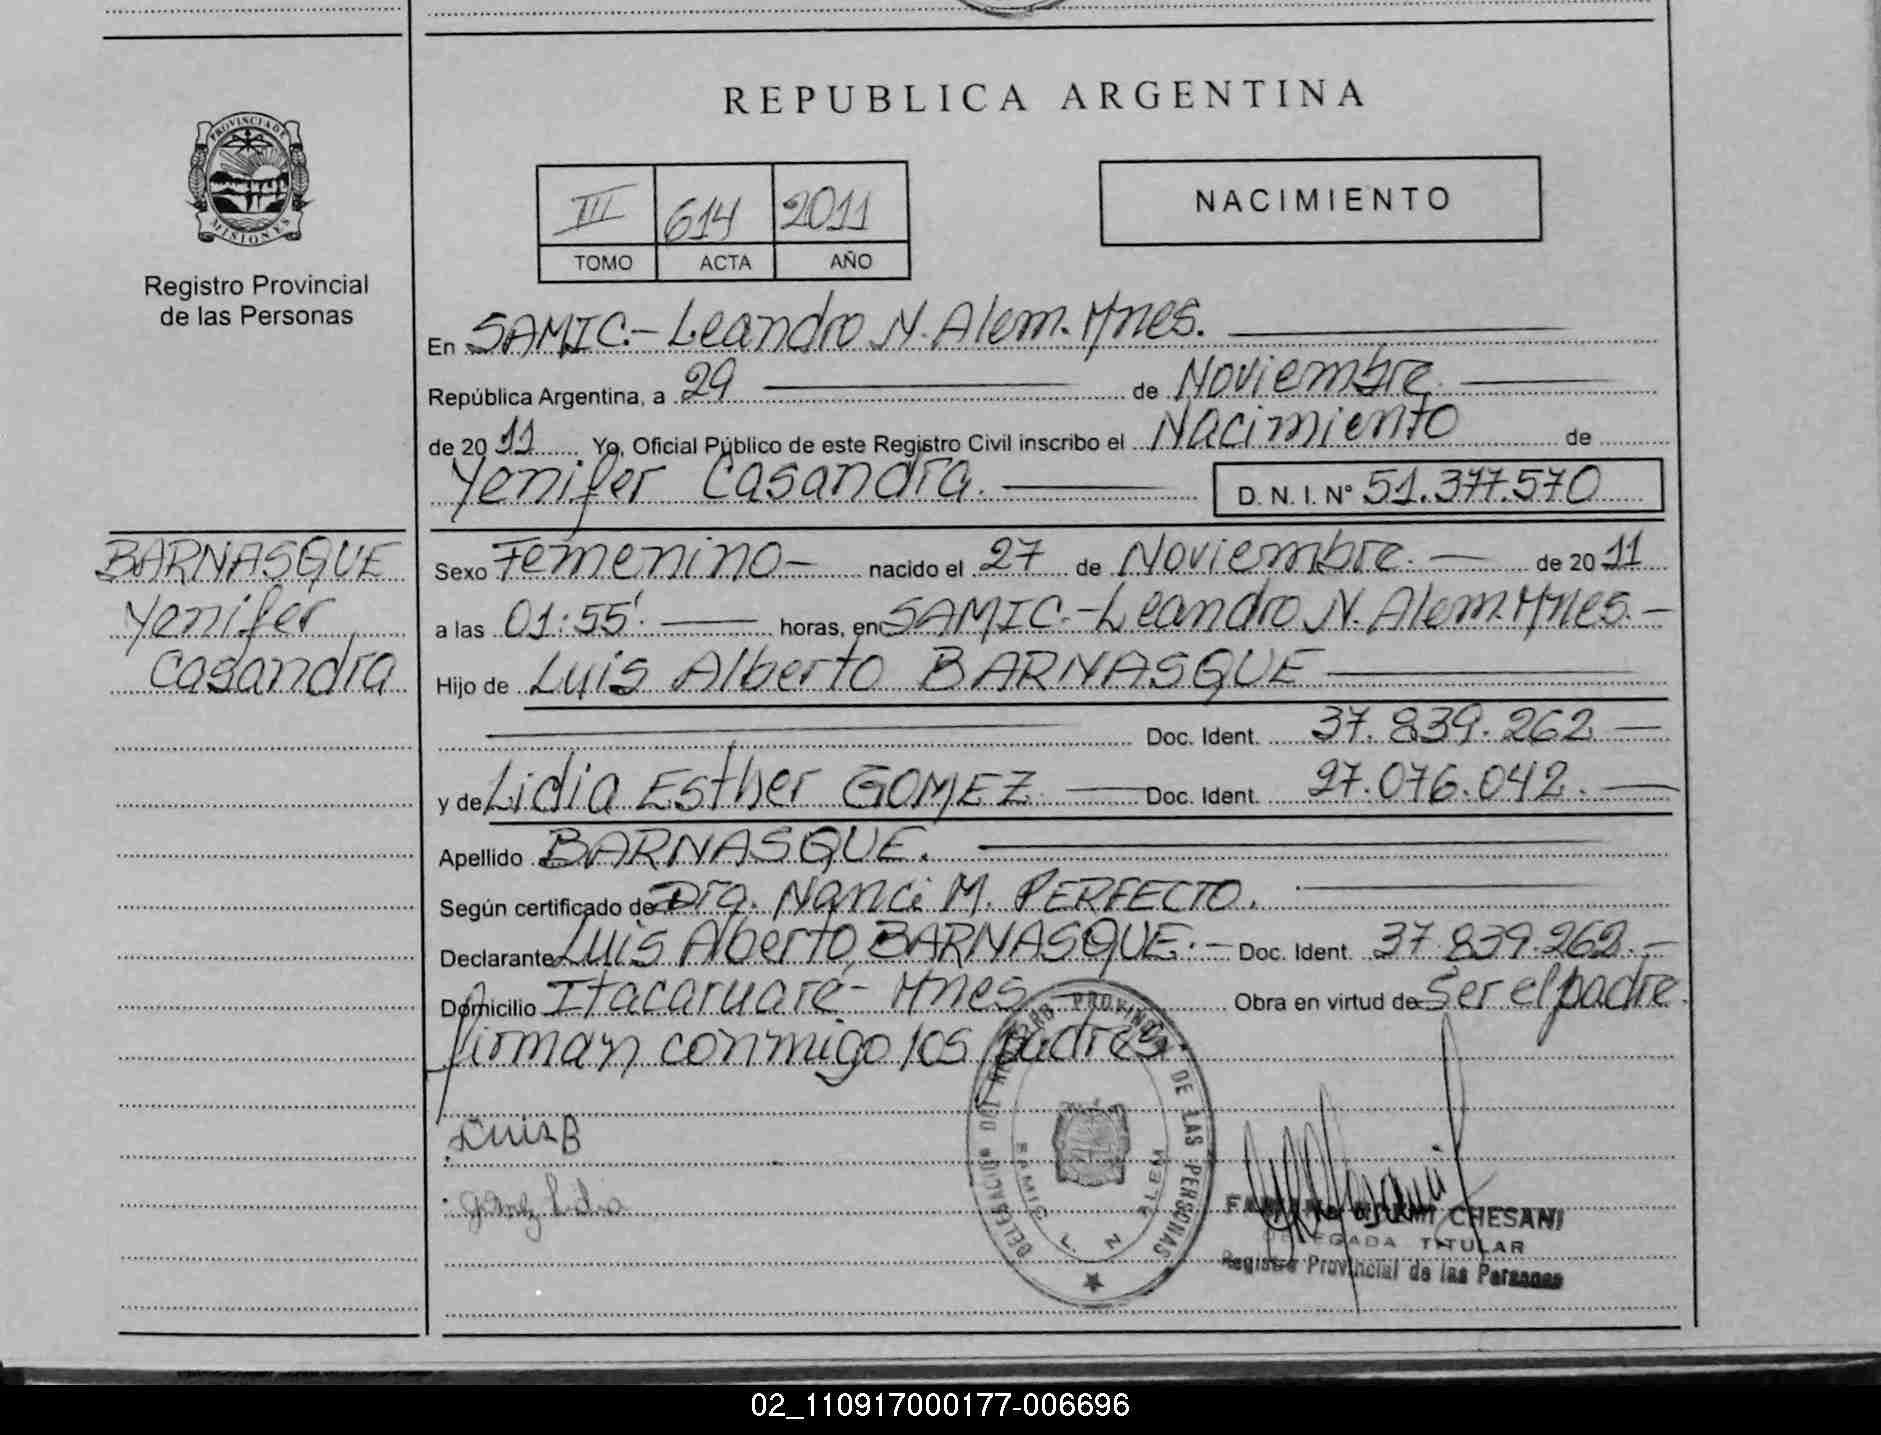 REPUBLICA ARGENTINA
PROVINCIA DE
MISIONES
Registro Provincial
de las Personas
III 614 2011
TOMO ACTA AÑO
NACIMIENTO
En SAMIC.- Leandro N. Alem. Mnes.
República Argentina, a 29 de Noviembre.
de 2011 Yo, Oficial Público de este Registro Civil inscribo el Nacimiento de
Yenifer Casandra. D. N. I. N° 51.377.570
BARNASQUE
Yenifer
Casandra
Sexo Femenino- nacido el 27 de Noviembre. de 2011
a las 01:55'. horas, en SAMIC.-Leandro N. Alem. Mnes.-
Hijo de Luis Alberto BARNASQUE
Doc. Ident. 37.839.262
y de Lidia Esther GOMEZ Doc. Ident. 27.076.042.
Apellido BARNASQUE.
Según certificado de Dra. Nanci M. PERFECTO.
Declarante Luis Alberto BARNASQUE.- Doc. Ident. 37.839.262.-
Domicilio Itacaruaré- Mnes Obra en virtud de Ser el padre
firman conmigo los padres.
Luis B
Gomez Lidia
DELEGACION REGISTRO PROVINCIAL DE LAS PERSONAS
SAMIC L. N. ALEM
CHESANI
DELEGADA TITULAR
Registro Provincial de las Personas
02_110917000177-006696